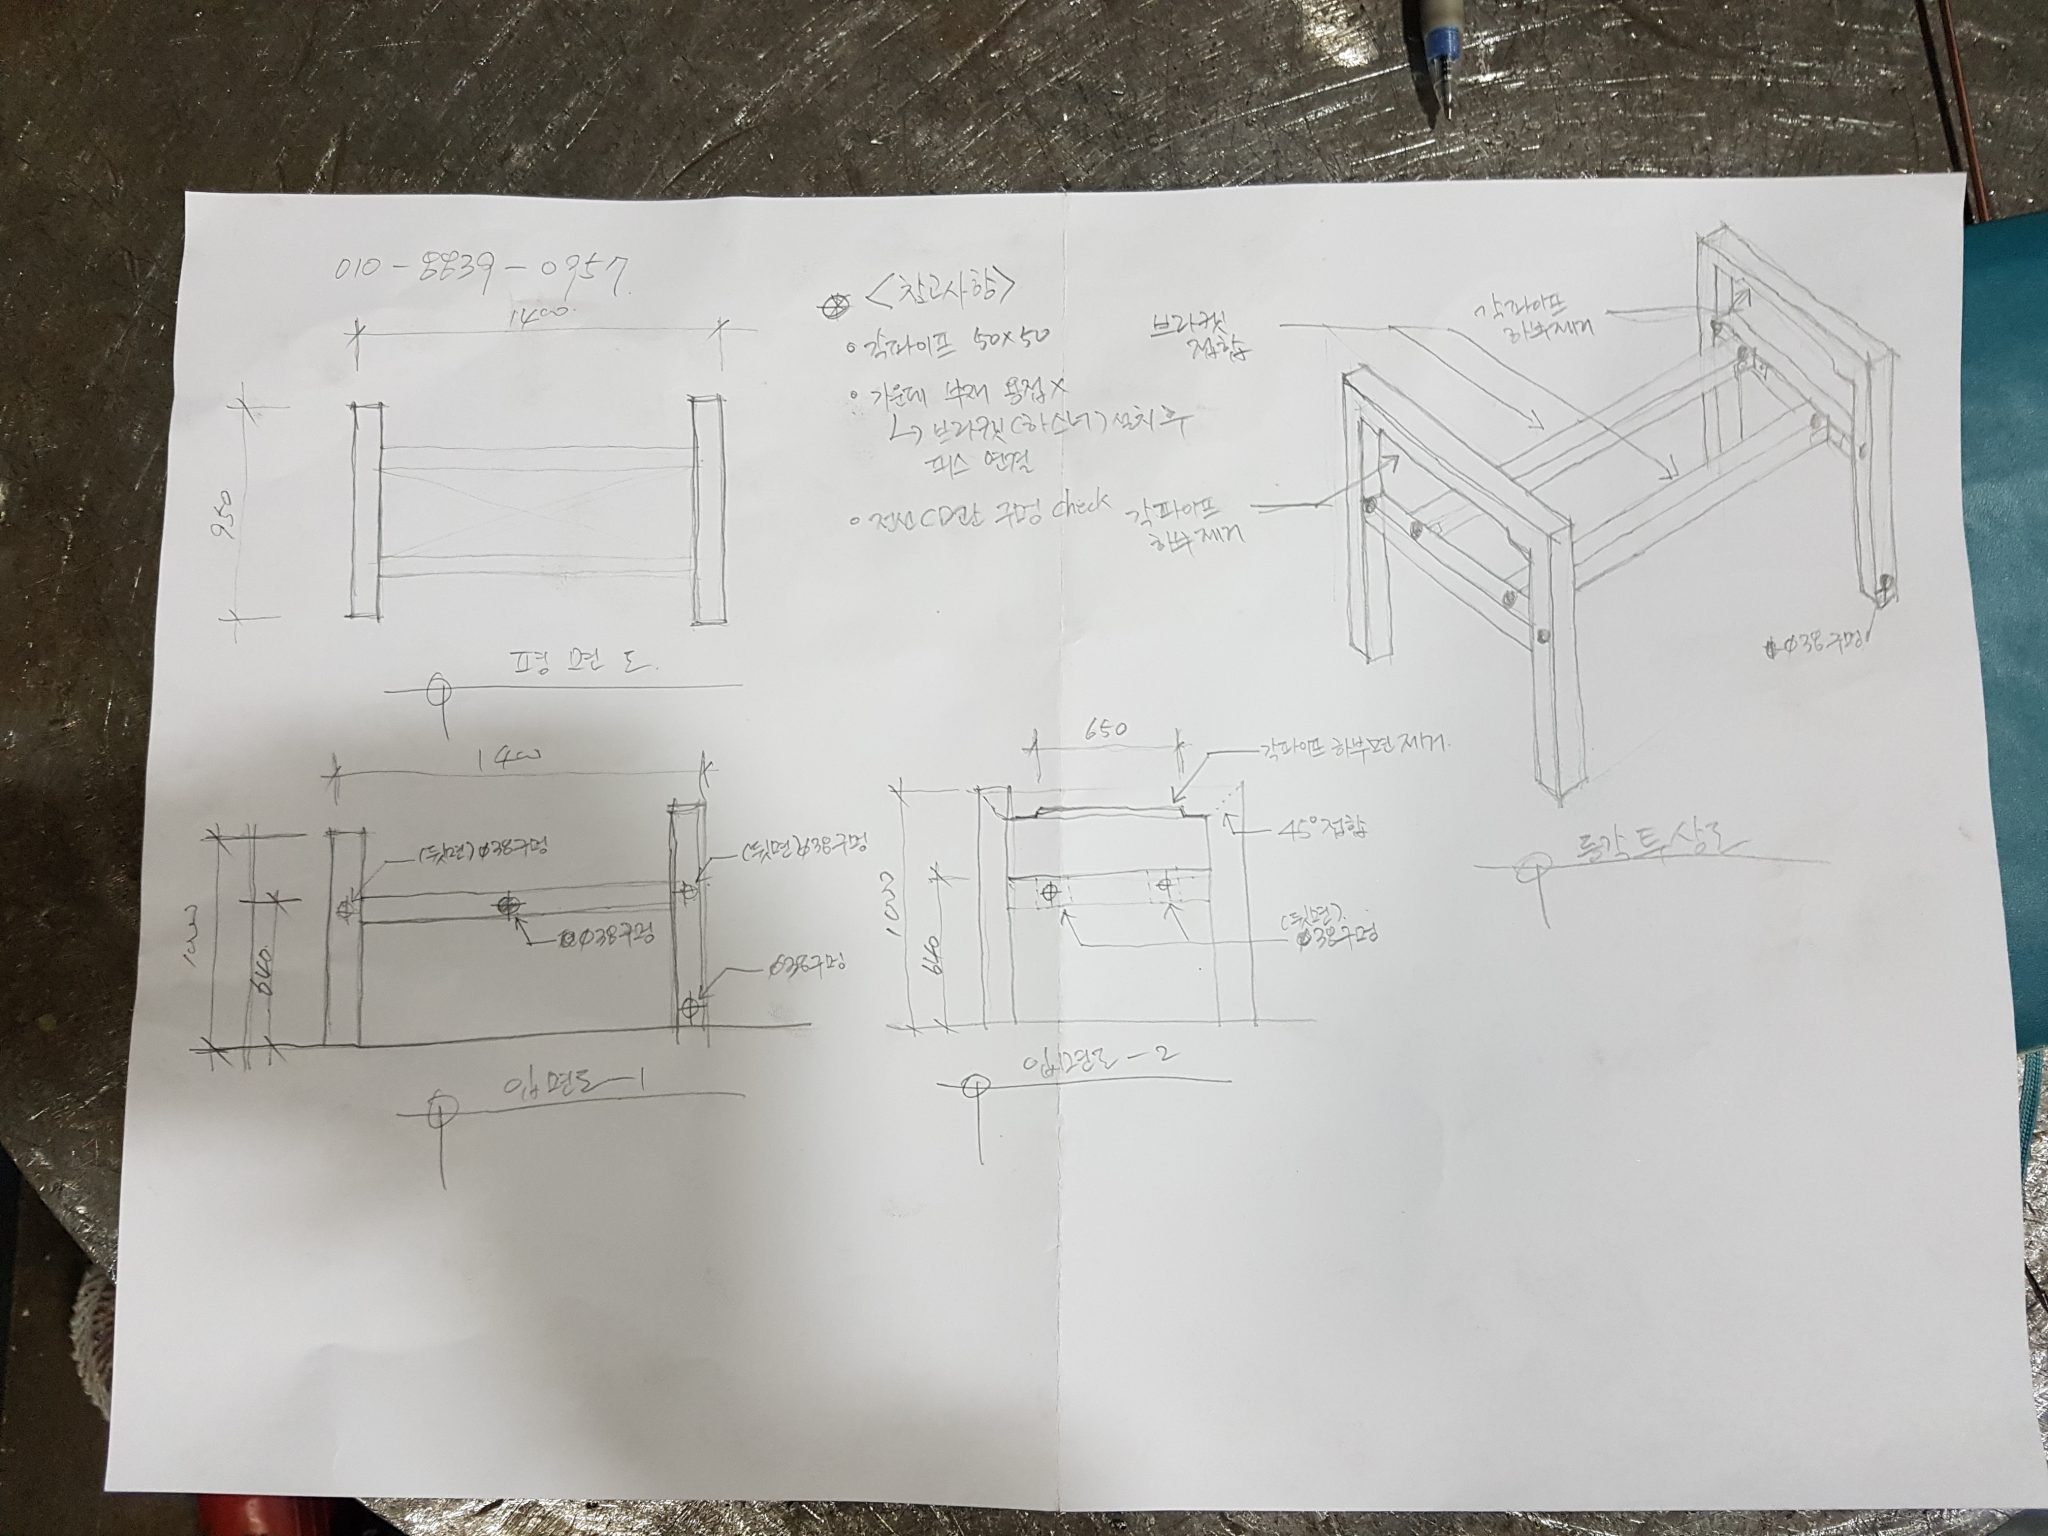 010-8839-0957
<참고사항>
각파이프 50x50
가운데 부재 용접 x
↳ 브라켓(하스너) 설치 후
피스 연결
전선 CD관 구멍 check
1400
950
평면도
브라켓
접합
각파이프
하부제거
각파이프
하부제거
Φ38구멍
등각투상도
1400
1000
640
(뒷면) Φ38구멍
(뒷면) Φ38구멍
Φ38구멍
Φ38구멍
입면도-1
650
각파이프 하부면 제거.
45° 접합
1000
640
(뒷면)
Φ38구멍
입면도-2